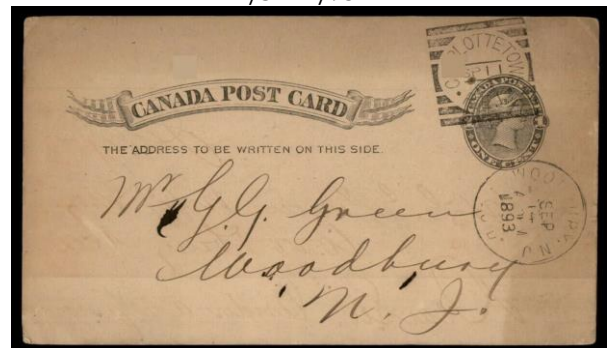 CANADA POST CARD
THE ADDRESS TO BE WRITTEN ON THIS SIDE.
Mr G. G. Green
Woodbury
N. J.
SEP
1893